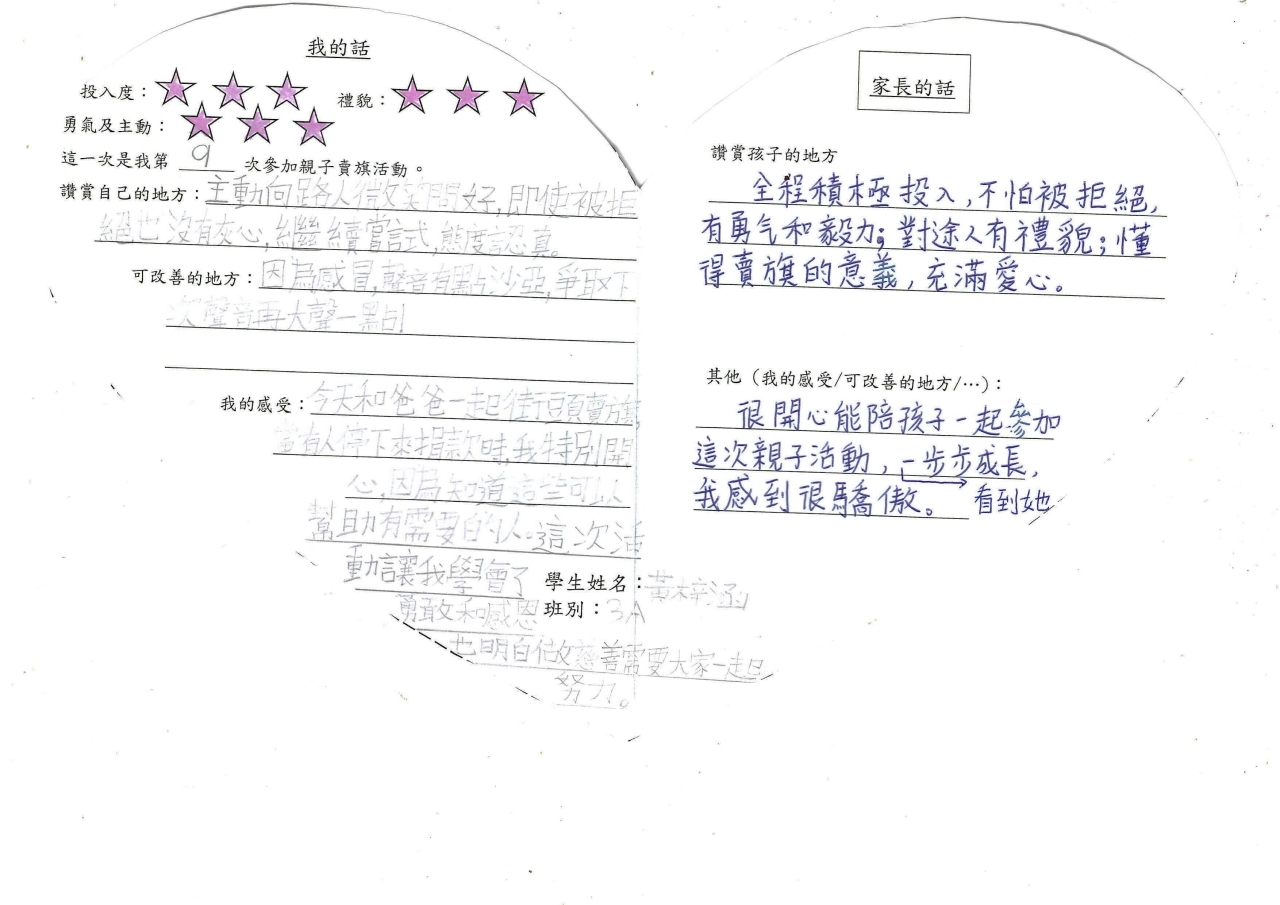 我的話
投入度：
禮貌：
勇氣及主動：
這一次是我第 9 次參加親子賣旗活動。
讚賞自己的地方：主動向路人微笑問好，即使被拒
絕也沒有灰心，繼續嘗試，態度認真。
可改善的地方：因為感冒，聲音有點沙亞，爭取下
次聲音再大聲一點
我的感受：今天和爸爸一起街頭賣旗，
當有人停下來捐款時，我特別開
心，因為知道這些可以
幫助有需要的人。這次活
動讓我學會了
勇敢和感恩
也明白做慈善需要大家一起
努力。
學生姓名：黃梓涵
班別：3A
家長的話
讚賞孩子的地方
全程積極投入，不怕被拒絕，
有勇气和毅力；對途人有禮貌；懂
得賣旗的意義，充滿愛心。
其他（我的感受/可改善的地方/…）：
很開心能陪孩子一起參加
這次親子活動，一步步成長，
我感到很驕傲。 看到她